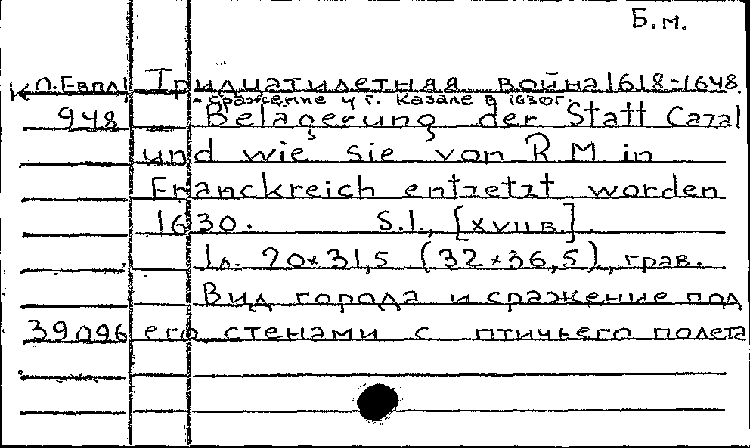 Б.м.
К П.Европ. Тридцатилетняя война 1618-1648.
- сражение у г. Казале в 1630г.
948 Belagerung der Statt Cazal
und wie sie von R M in
Franckreich entzetzt worden
1630. S.l., [XVII в.].
1 л. 20×31,5 (32×36,5), грав.
Вид города и сражение под
39096 его стенами с птичьего полета